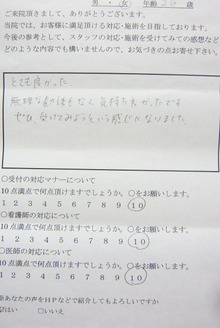 男・女 年齢 20 歳
ご来院頂きまして、ありがとうございます。
当院では、お客様に満足頂ける対応・施術を目指しております。
今後の参考として、スタッフの対応・施術を受けてみての感想など
どのような内容でも構いませんので、お気づきの点お寄せ下さい。
とても良かった。
無理な勧誘もなく気持ち良かったです
また受けてみようという感じになりました。
○受付の対応マナーについて
10点満点で何点頂けますでしょうか。○をお願いします。
1 2 3 4 5 6 7 8 9 10
○看護師の対応について
10点満点で何点頂けますでしょうか。○をお願いします。
1 2 3 4 5 6 7 8 9 10
○医師の対応について
10点満点で何点頂けますでしょうか。○をお願いします。
1 2 3 4 5 6 7 8 9 10
あなたの声をHPなどで紹介してもよろしいですか
はい ○いいえ